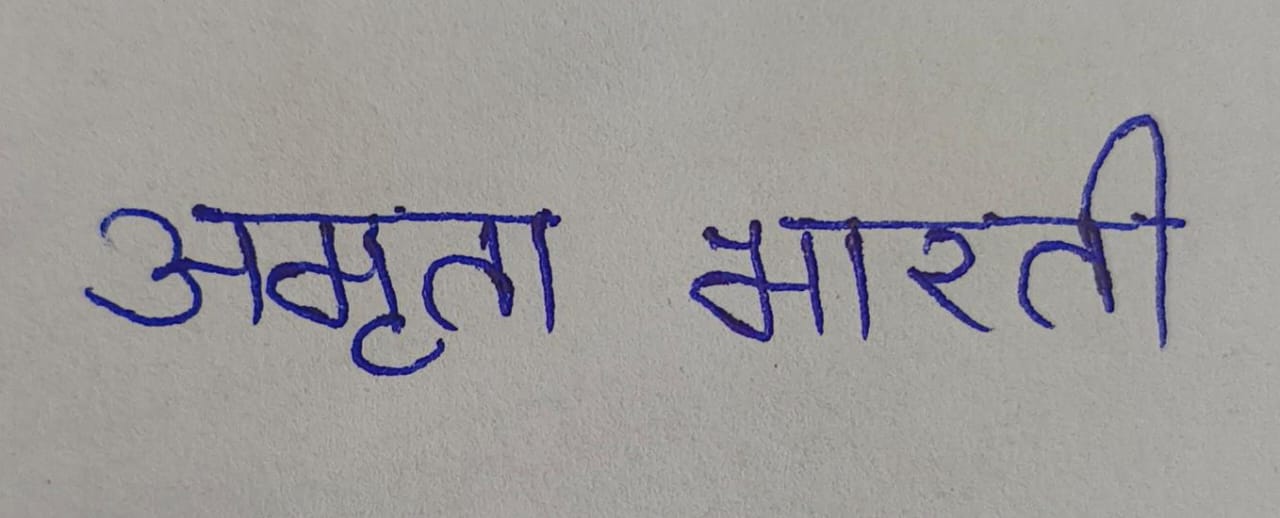 अमृता भारती